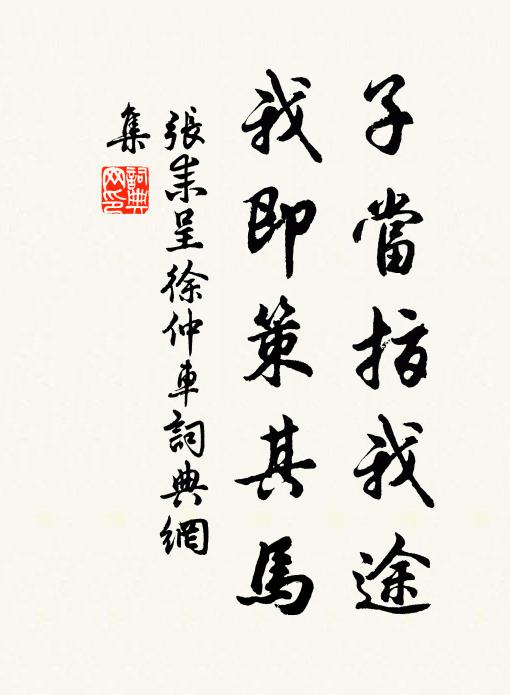 子當指我途
我即策其馬
張耒呈徐仲車詞典網
集
詞典
网印